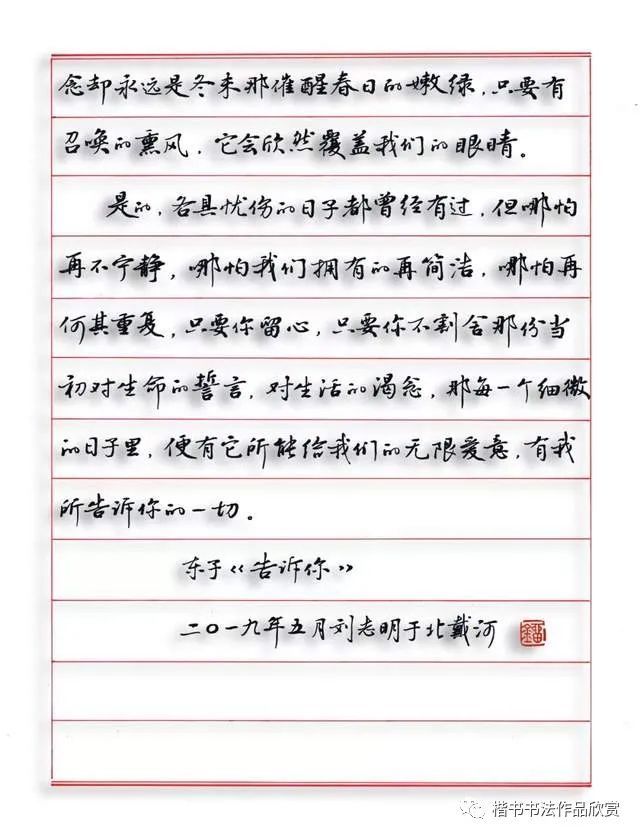 念却永远是冬末那催醒春日的嫩绿，只要有
召唤的熏风，它会欣然覆盖我们的眼睛。
是的，各具忧伤的日子都曾经有过，但哪怕
再不宁静，哪怕我们拥有的再简洁，哪怕再
何其重复，只要你留心，只要你不割舍那份当
初对生命的誓言，对生活的渴念，那每一个细微
的日子里，便有它所能给我们的无限爱意，有我
所告诉你的一切。
东子《告诉你》
二〇一九年五月刘志明于北戴河
楷书书法作品欣赏